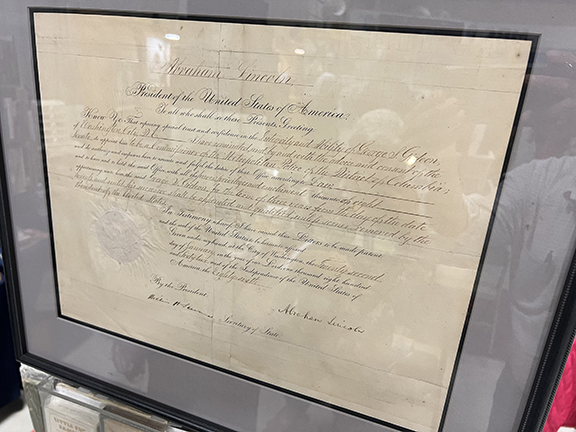 Abraham Lincoln
President of the United States of America;
To all who shall see these Presents, Greeting
Know Ye; That reposing special trust and confidence in the Integrity and Ability of George S. Gideon,
of Washington City D.C. I have nominated and by and with the advice and consent of the
Senate do appoint him to be a Commissioner of the Metropolitan Police of the District of Columbia;
and do authorize and empower him to execute and fulfil the duties of that Office according to Law;
and to have and to hold the said Office with all the powers, privileges and emoluments thereunto of right
appertaining unto him the said George S. Gideon, for the term of three years from the day of the date
hereof, and until his successor shall be appointed and qualified, unless sooner removed by the
President of the United States.
In Testimony whereof, I have caused these Letters to be made patent
and the seal of the United States to be hereunto affixed
Given under my hand, at the City of Washington, the Twenty second
day of January in the year of our Lord one thousand eight hundred
and sixty two and of the Independence of the United States of
America, the Eighty sixth.
By the President
Abraham Lincoln
Secretary of State